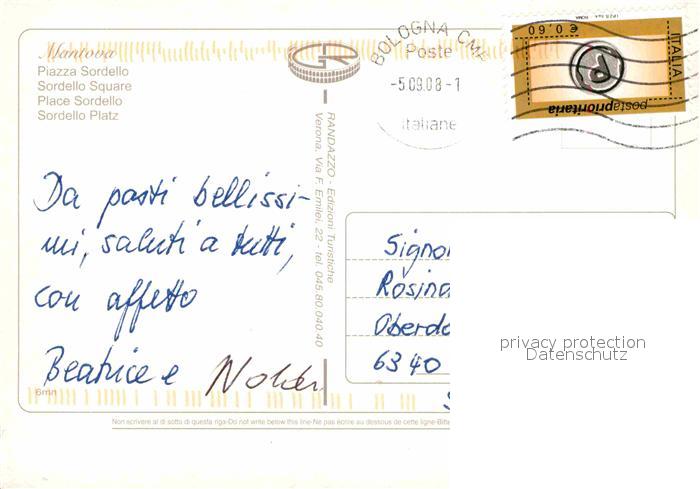 Mantova
Piazza Sordello
Sordello Square
Place Sordello
Sordello Platz
RANDAZZO - Edizioni Turistiche
Verona, Via F. Emilei, 22 - tel. 045.80.040.40
BOLOGNA CMP
Poste
-5.09.08-1
Italiane
ITALIA
€ 0,60
postaprioritaria
Da posti bellissi-
mi, saluti a tutti,
con affetto
Beatrice e
Signor
Rosina
Oberdo
6340
privacy protection
Datenschutz
6mn
Non scrivere al di sotto di questa riga-Do not write below this line-Ne pas écrire au dessous de cette ligne-Bitte